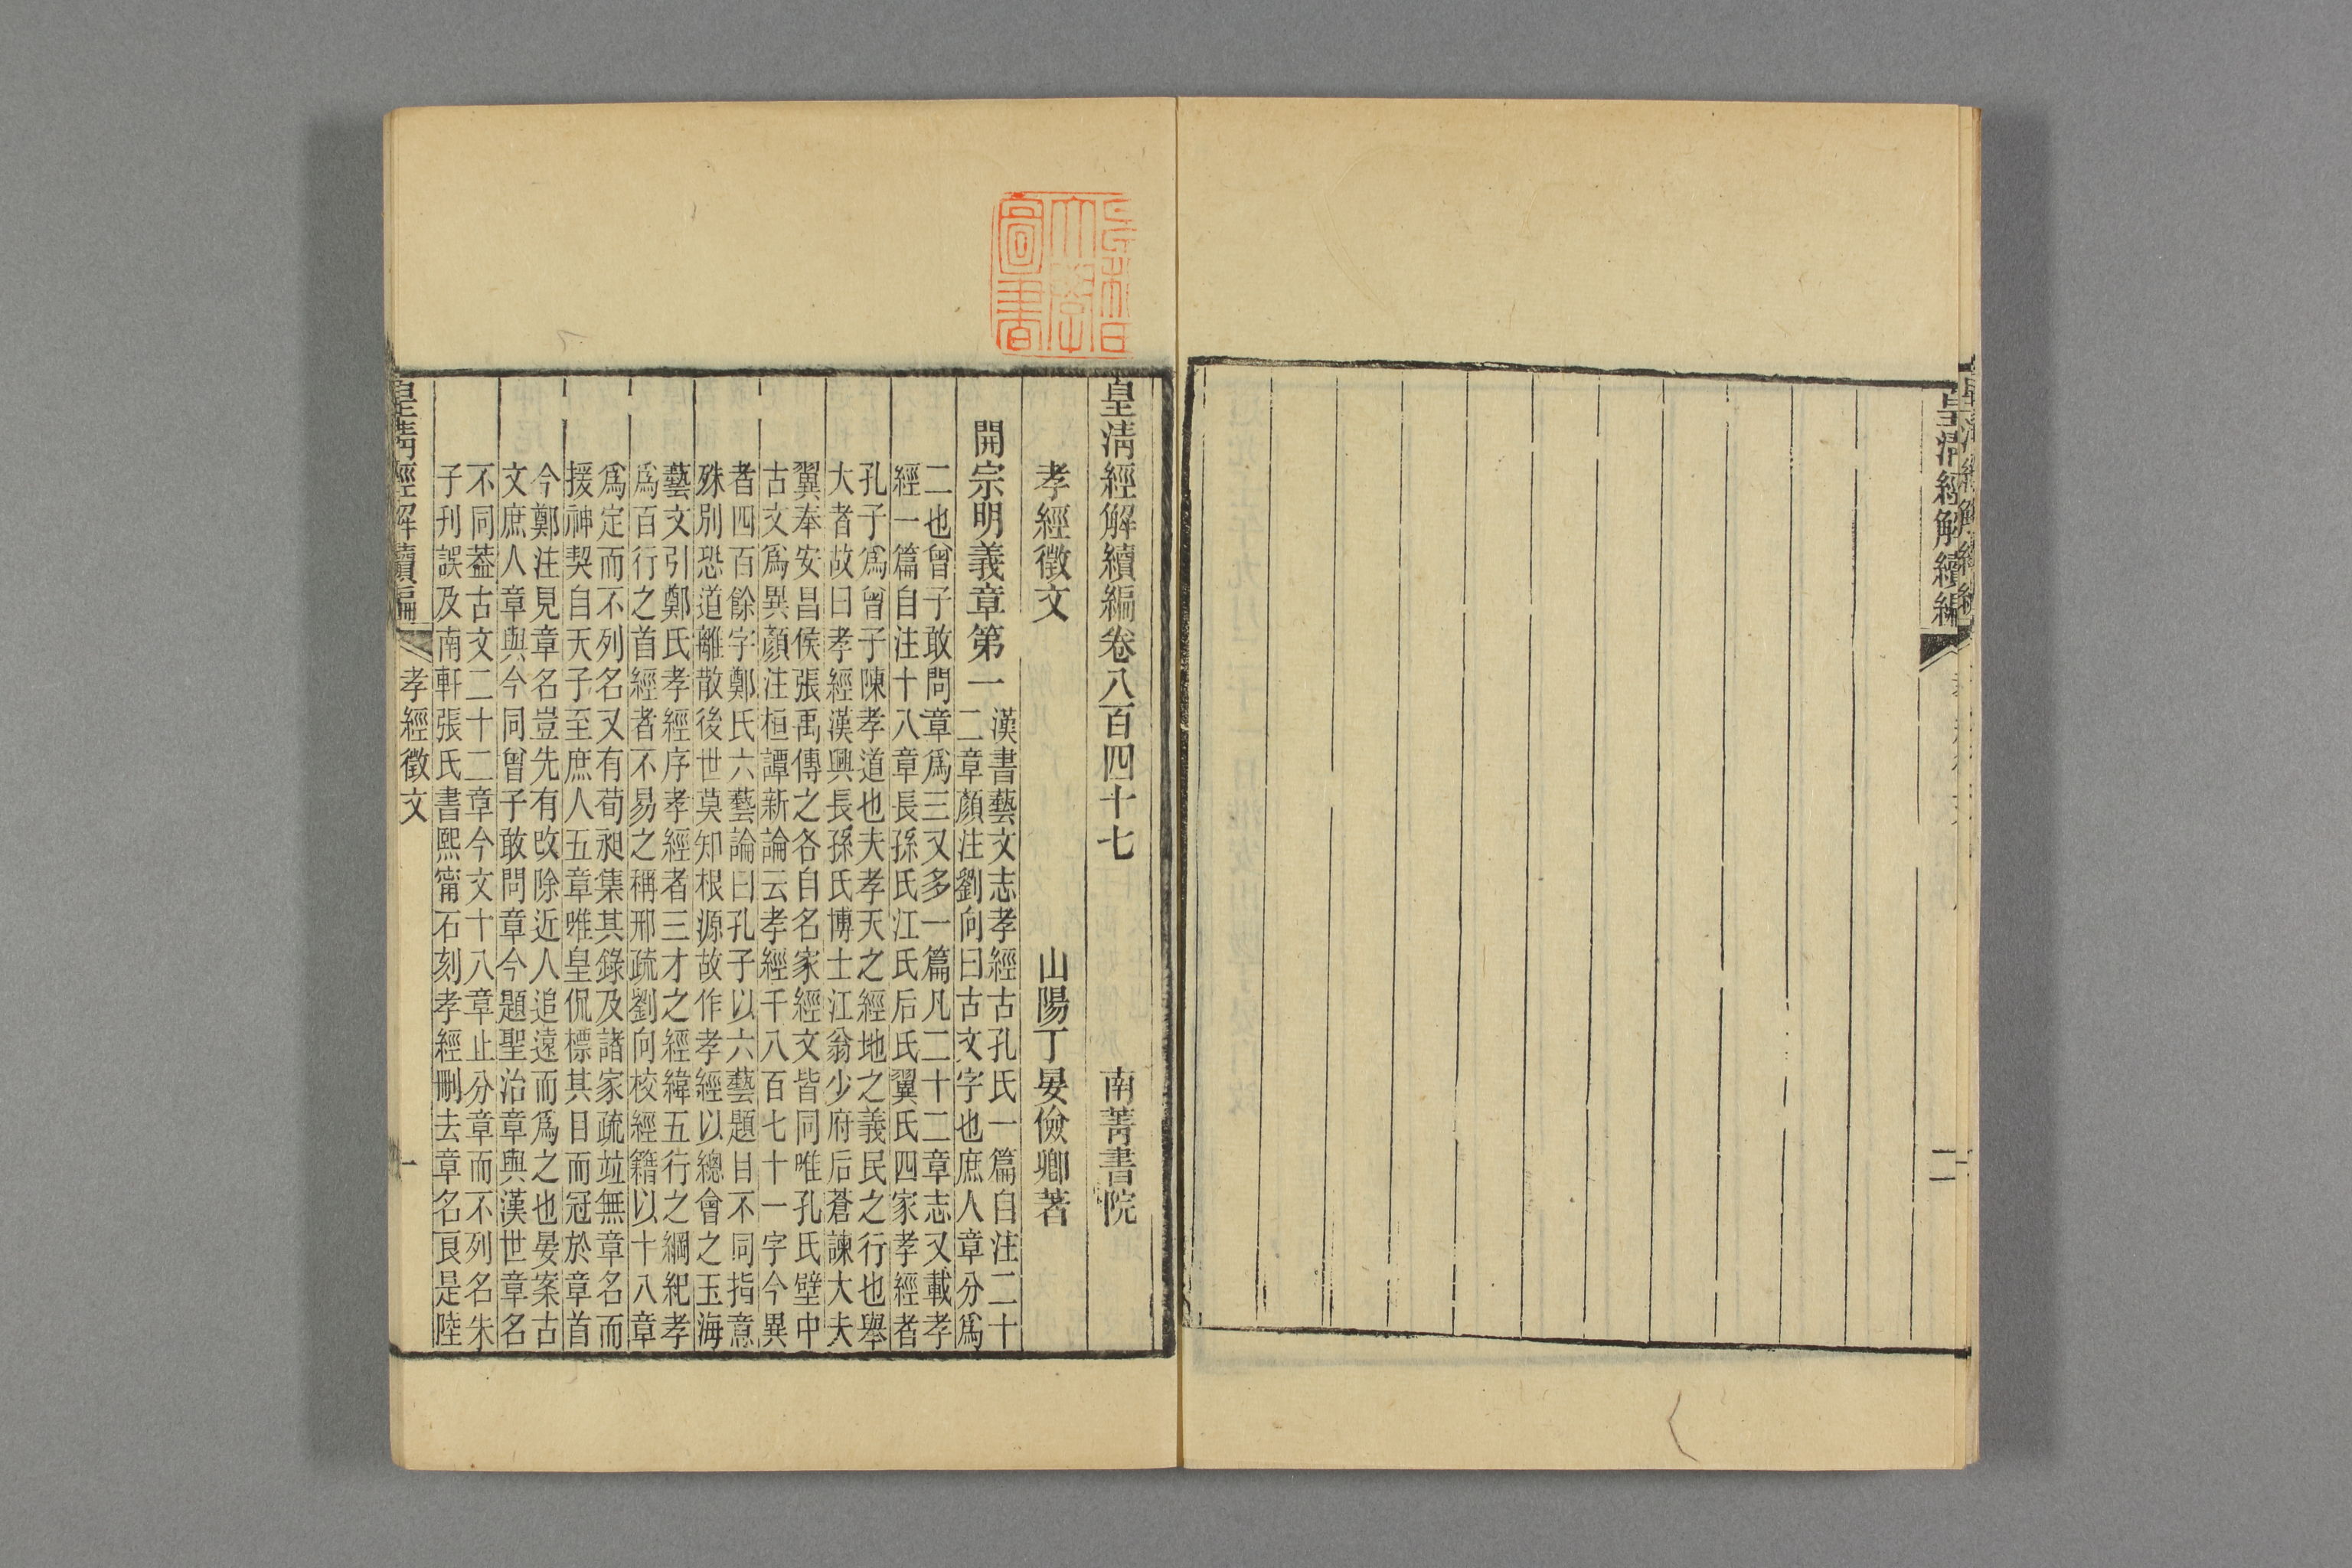 皇清經解續編
二
大學
圖書
皇清經解續編卷八百四十七
南菁書院
孝經徵文
山陽丁晏儉卿著
開宗明義章第一
漢書藝文志孝經古孔氏一篇自注二十
二章顏注劉向曰古文字也庶人章分爲
二也曾子敢問章爲三又多一篇凡二十二章志又載孝
經一篇自注十八章長孫氏江氏后氏翼氏四家孝經者
孔子爲曾子陳孝道也夫孝天之經地之義民之行也舉
大者故曰孝經漢興長孫氏博士江翁少府后蒼諫大夫
翼奉安昌侯張禹傳之各自名家經文皆同唯孔氏壁中
古文爲異顏注桓譚新論云孝經千八百七十一字今異
者四百餘字鄭氏六藝論曰孔子以六藝題目不同指意
殊別恐道離散後世莫知根源故作孝經以總會之玉海
藝文引鄭氏孝經序孝經者三才之經緯五行之綱紀孝
爲百行之首經者不易之稱邢疏劉向校經籍以十八章
爲定而不列名又有荀昶集其錄及諸家疏竝無章名而
援神契自天子至庶人五章唯皇侃標其目而冠於章首
今鄭注見章名豈先有改除近人追遠而爲之也晏案古
文庶人章與今同曾子敢問章今題聖治章與漢世章名
不同葢古文二十二章今文十八章止分章而不列名朱
子刊誤及南軒張氏書熙甯石刻孝經刪去章名良是陸
皇清經解續編
孝經徵文
一